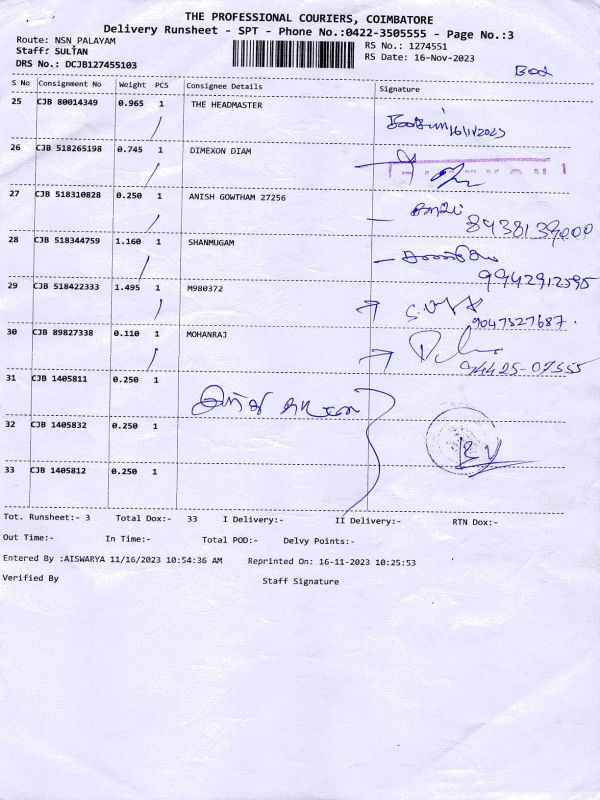 THE PROFESSIONAL COURIERS, COIMBATORE
Delivery Runsheet - SPT - Phone No.:0422-3505555 - Page No.:3
Route: NSN PALAYAM
RS No.: 1274551
Staff: SULTAN
RS Date: 16-Nov-2023
DRS No.: DCJB127455103
S No Consignment No Weight PCS Consignee Details Signature
25 CJB 80014349 0.965 1 THE HEADMASTER
16/11/2023
26 CJB 518265198 0.745 1 DIMEXON DIAM
27 CJB 518310828 0.250 1 ANISH GOWTHAM 27256
8938139000
28 CJB 518344759 1.160 1 SHANMUGAM
9942912595
29 CJB 518422333 1.495 1 M980372
9047527687.
30 CJB 89827338 0.110 1 MOHANRAJ
94425-07555
31 CJB 1405811 0.250 1
32 CJB 1405832 0.250 1
33 CJB 1405812 0.250 1
Tot. Runsheet:- 3 Total Dox:- 33 I Delivery:- II Delivery:- RTN Dox:-
Out Time:- In Time:- Total POD:- Delvy Points:-
Entered By :AISWARYA 11/16/2023 10:54:36 AM Reprinted On: 16-11-2023 10:25:53
Verified By Staff Signature